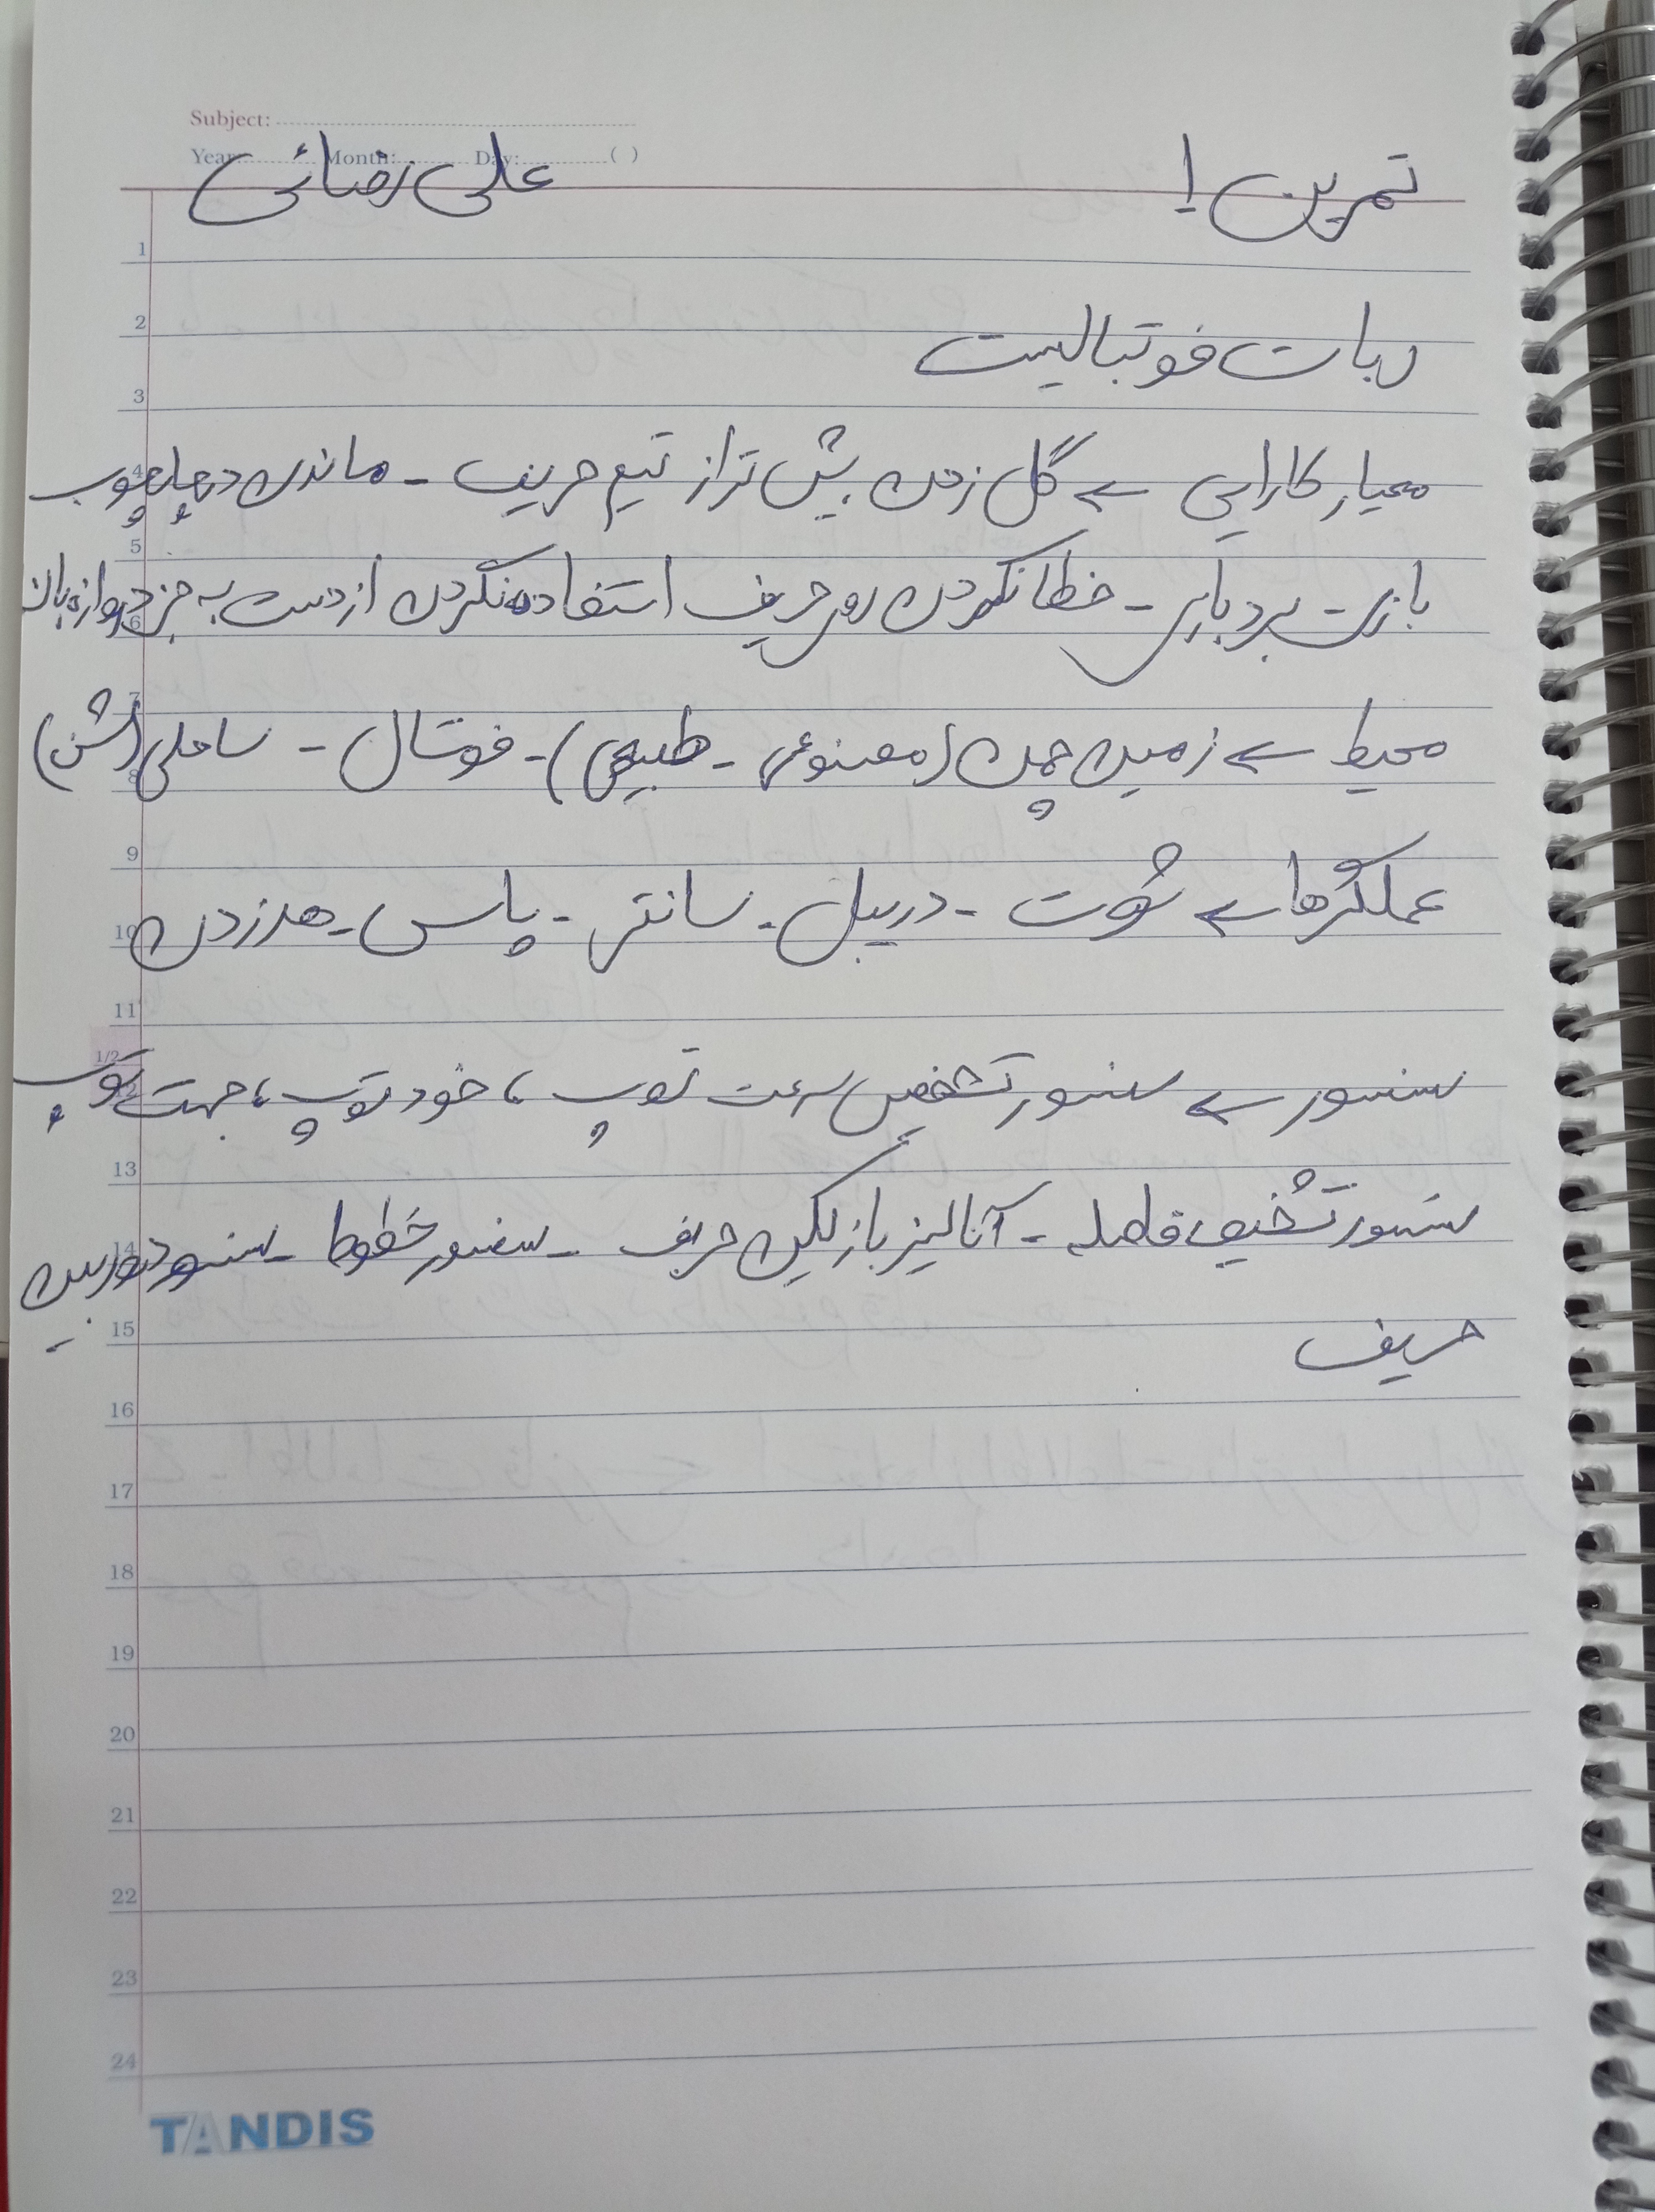 Subject:
Year: Month: Day: ( )
تمرین 1 علی رضائی
ربات فوتبالیست
معیار کارایی ← گل زدن بیش تر از تیم حریف - ماندن در چارچوب
بازی - برد بازی - خطا نکردن روی حریف استفاده نکردن از دست به جز دروازه بان
محیط ← زمین چمن (مصنوعی - طبیعی) - فوتسال - ساحلی (شن)
عملگرها ← شوت - دریبل - سانتر - پاس - هد زدن
سنسور ← سنسور تشخیص سرعت توپ ، خود توپ ، جهت توپ
سنسور تشخیص فاصله - آنالیز بازیکن حریف - سنسور خطوط - سنسور دوربین
حریف
1
2
3
4
5
6
7
8
9
10
11
1/2
12
13
14
15
16
17
18
19
20
21
22
23
24
TANDIS